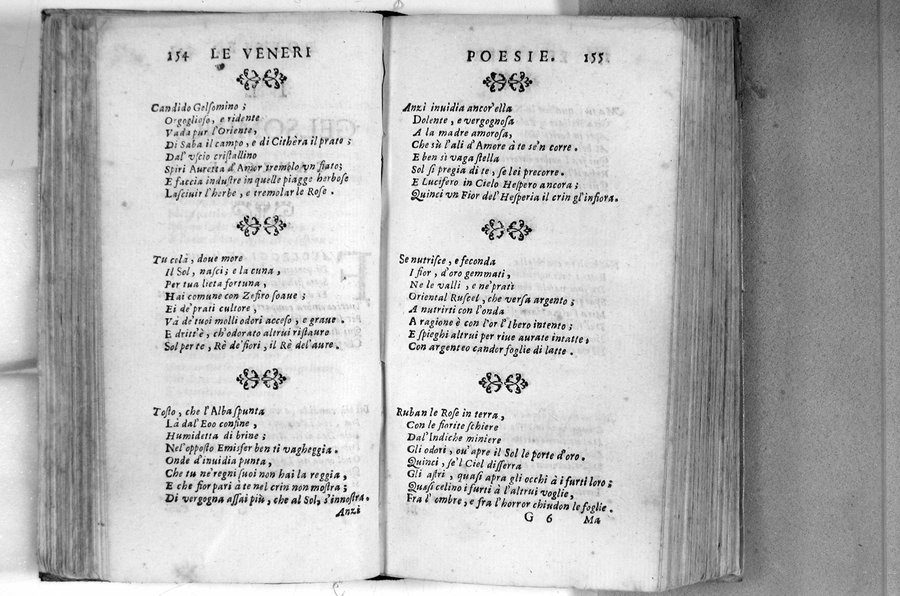 154 LE VENERI
Candido Gelsomino;
Orgoglioso, e ridente
Vada pur l'Oriente,
Di Saba il campo, e di Cithèra il prato;
Dal' vscio cristallino
Spiri Auretta d'Amor tremolo vn fiato;
E faccia industre in quelle piagge herbose
Lasciuir l'herbe, e tremolar le Rose.
Tu colà, doue more
Il Sol, nasci; e la cuna,
Per tua lieta fortuna,
Hai comune con Zefiro soaue;
Ei de' prati cultore,
Và de' tuoi molli odori acceso, e graue.
E dritt'è, ch'odorato altrui ristauro
Sol per te, Rè de' fiori, il Rè del' aure.
Tosto, che l'Alba spunta
Là dal' Eoo confine,
Humidetta di brine;
Nel' opposto Emisfer ben ti vagheggia.
Onde d'inuidia punta,
Che tu ne' regni suoi non hai la reggia,
E che fior pari à te nel crin non mostra;
Di vergogna assai più, che al Sol, s'innostra.
Anzi
POESIE. 155
Anzi inuidia ancor' ella
Dolente, e vergognosa
A la madre amorosa,
Che sù l'ali d'Amore à te sen corre.
E ben sì vaga stella
Sol si pregia di te, se lei precorre.
E Lucifero in Cielo Hespero ancora;
Quinci vn Fior del' Hesperia il crin gl'infiora.
Se nutrisce, e feconda
I fior, d'oro gemmati,
Ne le valli, e ne' prati
Oriental Ruscel, che versa argento;
A nutrirti con l'onda
A ragione è con l'or l'Ibero intento;
E spieghi altrui per riue aurate intatte,
Con argenteo candor foglie di latte.
Ruban le Rose in terra,
Con le fiorite schiere
Dal' Indiche miniere
Gli odori, ou' apre il Sole le porte d'oro.
Quinci, se'l Ciel disserra
Gli astri, quasi apra gli occhi à i furti loro;
Quasi celino i furti à l'altrui voglie,
Fra l' ombre, e fra l'horror chiudon le foglie.
G 6 Ma